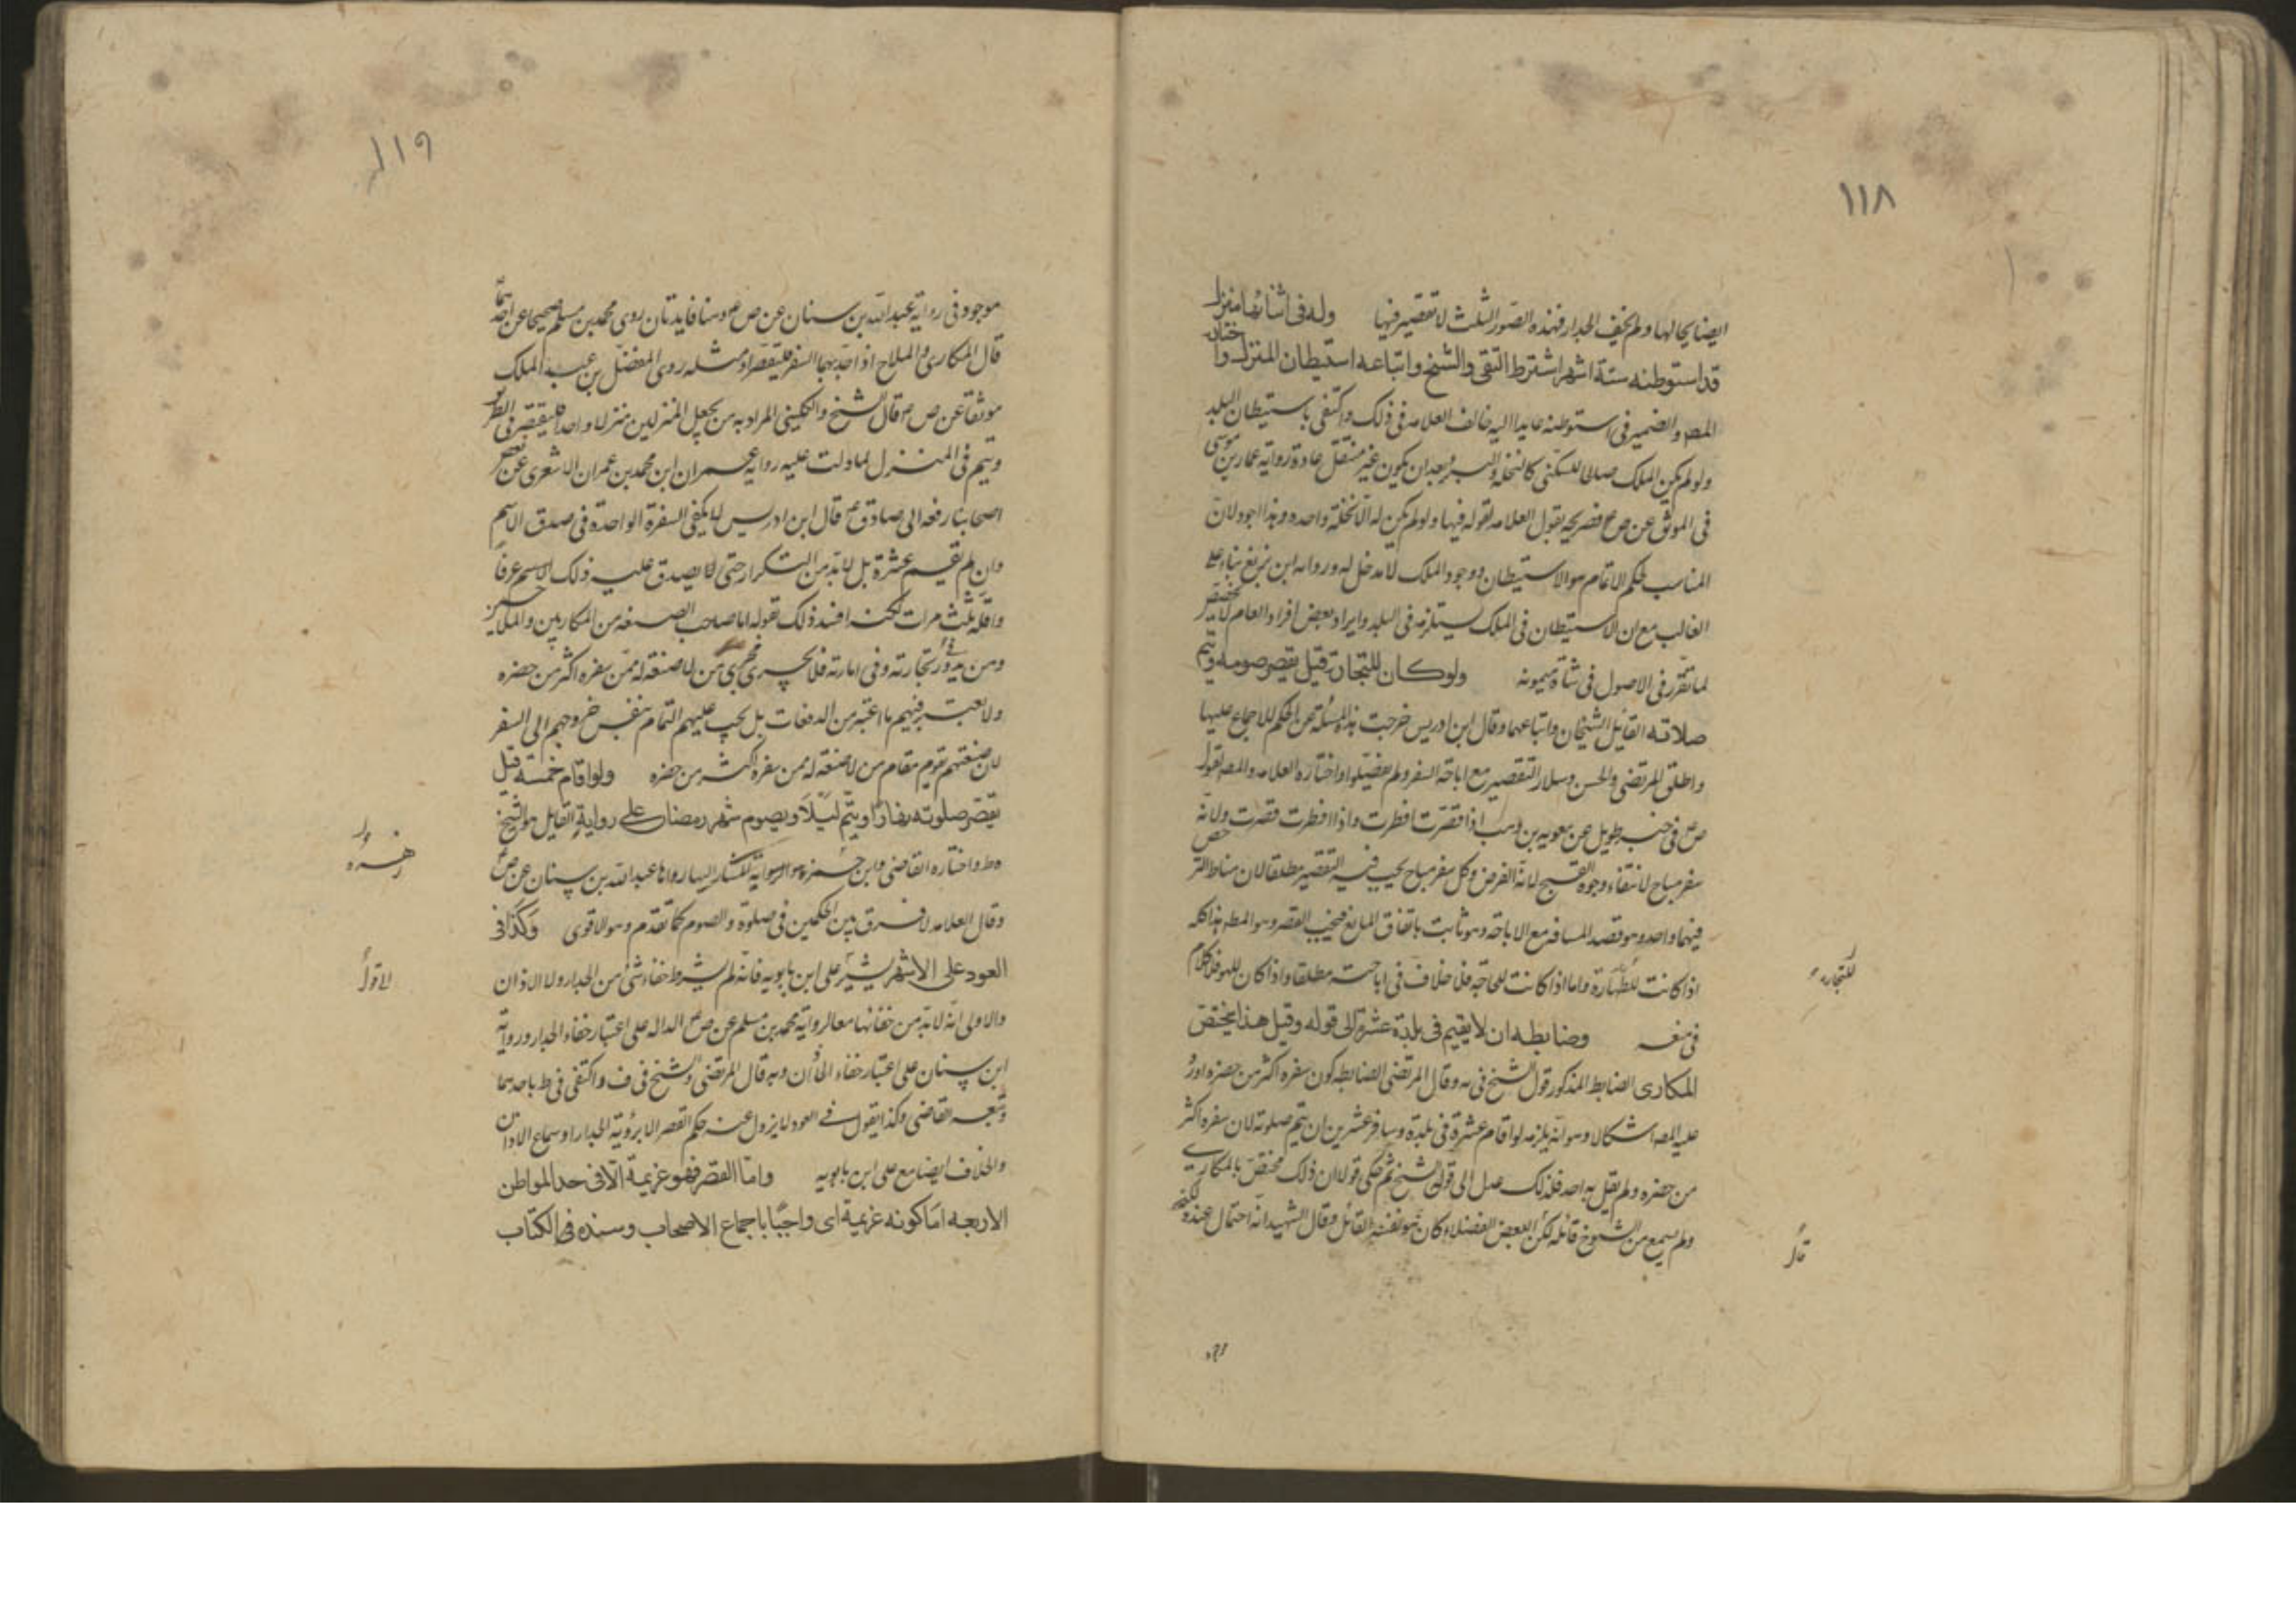 ١١٨
ايضا بحالها ولم يخف الجدار فهذه الصور الثلث لا تقصير فيها وله في اثنائها منزل
قد استوطنه ستة اشهر اشترط التقى والشيخ واتباعه استيطان المنزل واختاره
المصـ والضمير في استوطنه عايدا اليه خالف العلامه في ذلك واكتفى باستيطان البلد
ولو لم يكن الملك صالحا للسكنى كالنخلة والبئر بعد ان يكون غير منتقل عادة رواية عمار بن موسى
في الموثق عن ص ع فصريحه بقول العلامه لقوله فيها ولو لم يكن له الا نخلة واحده وهذا اجود لان
المناسب لحكم الاتمام هو الاستيطان ووجود الملك لا مدخل له وروايه ابن بزيع بناء على
الغالب مع ان الاستيطان في الملك يستلزمه في البلد وايراد بعض افراد العام لا يخصص
لما تقرر في الاصول في شاة ميمونه ولو كان للتجارة قيل يقصر صومه ويتم
صلاته القائل الشيخان واتباعهما وقال ابن ادريس خرجت هذه المسئلة عن الحكم للاجماع عليها
واطلق المرتضى والحسن وسلار التقصير مع اباحة السفر ولم يفصلوا واختاره العلامه والمصـ لقول
ص ع في خبر طويل عن معويه بن وهب اذا قصرت افطرت واذا افطرت قصرت ولانه
سفر مباح لانتفاء وجوه القبيح لانه الفرض وكل سفر مباح يجب فيه التقصير مطلقا لان مناط الترخص
فيهما واحد وهو قصد المسافر مع الاباحة وهو ثابت باتفاق المانع فيجب القصر وهو المطـ هذا كله
اذا كانت للطهارة واما اذا كانت للحاجة فلا خلاف في اباحته مطلقا واذا كان للهو فلا كلام
للتجارة
في منعه وضابطه ان لا يقيم في بلدة عشرة الى قوله وقيل هذا يختص
المكارى الضابط المذكور قول الشيخ في يه وقال المرتضى الضابط كون سفره اكثر من حضره اورد
عليه المصـ اشكالا وهو انه يلزمه لو اقام عشرة في بلدة وسافر عشرين ان يتم صلوته لان سفره اكثر
من حضره ولم يقل به احد فلذلك عدل الى قول الشيخ ثم حكى قولا ان ذلك مختص بالمكارى
ولم يسمع من الشيوخ قائله لكن لبعض الفضلاء كان هو نفسه القائل وقال الشهيد انه احتمال عنده لكنه
قال
موجود
١١٩
موجود في رواية عبد الله بن سنان عن ص ع وهنا فايدتان روى محمد بن مسلم صحيحا عن احدهما
قال المكارى والملاح اذا جد بهما السفر فليقصرا ومثله روى المفضل بن عبد الملك
موثقا عن ص ع قال الشيخ والكليني المراد به من يجعل المنزلين منزلا واحدا فليقصر في الطريق
ويتم في المنزل لما دلت عليه رواية عمران ابن محمد بن عمران الاشعرى عن بعض
اصحابنا رفعه الى صادق ع قال ابن ادريس لا يكفى السفرة الواحدة في صدق الاسم
وان لم يقيم عشرة بل لابد من التكرار حتى لا يصدق عليه ذلك الاسم عرفا
واقله ثلث مرات لكنه افسد ذلك بقوله اما صاحب الصنعه من المكاريين والملاحين
ومن يدور في تجارته وفي امارته فلا يجرى مجرى من لا صنعة له ممن سفره اكثر من حضره
ولا يعتبر فيهم ما اعتبره من الدفعات بل يجب عليهم التمام بنفس خروجهم الى السفر
لان صنعتهم تقوم مقام من لا صنعة له ممن سفره اكثر من حضره ولو اقام خمسة قيل
يقصر صلوته نهارا ويتم ليلا ويصوم شهر رمضان على رواية القايل هو الشيخ
ط واختاره القاضى وابن حمزه والرواية المشار اليها رواها عبد الله بن سنان عن ص ع
وقال العلامه لا فرق بين الحكمين في صلوة والصوم كما تقدم وهو الاقوى وكذا في
العود على الاشهر يشير على ابن بابويه فانه لم يشترط خفاء شئ من الجدار ولا الاذان
لا قول
والاولى انه لابد من خفائهما معا لرواية محمد بن مسلم عن ص ع الداله على اعتبار خفاء الجدار ورواية
ابن سنان على اعتبار خفاء الاذان وبه قال المرتضى والشيخ في ف واكتفى في ط باحدهما
وتبعه القاضى وكذا يقول في العود لا يزول عنه حكم القصر الا برؤية الجدار او سماع الاذان
والخلاف ايضا مع على ابن بابويه واما القصر فهو عزيمة الا في احد المواطن
الاربعه اما كونه عزيمة اى واجبا باجماع الاصحاب وسنده في الكتاب